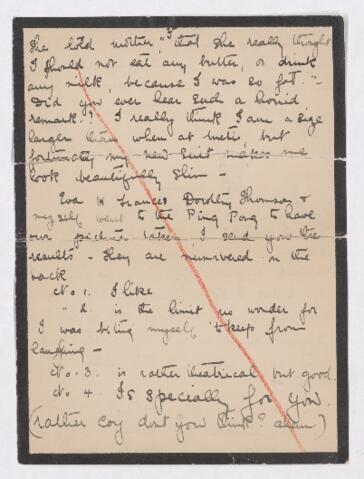 She told mother, "that she really thought
I should not eat any butter, or drink
any milk, because I was so fat."-
Did you ever hear such a horrid
remark? I really think I am a size
larger than when at but
fortunately my new suit makes me
look beautifully slim -
Eva H Frances Dorothy Thomson &
my self went to the Ping Pong to have
our pictures taken, I send you the
results - They are numbered on the
back
No 1. I like
" 2. is the limit no wonder for
I was biting myself to keep from
laughing -
No. 3. is rather theatrical but good.
No. 4 Is specially for you.
(rather coy dont you think? ahem)